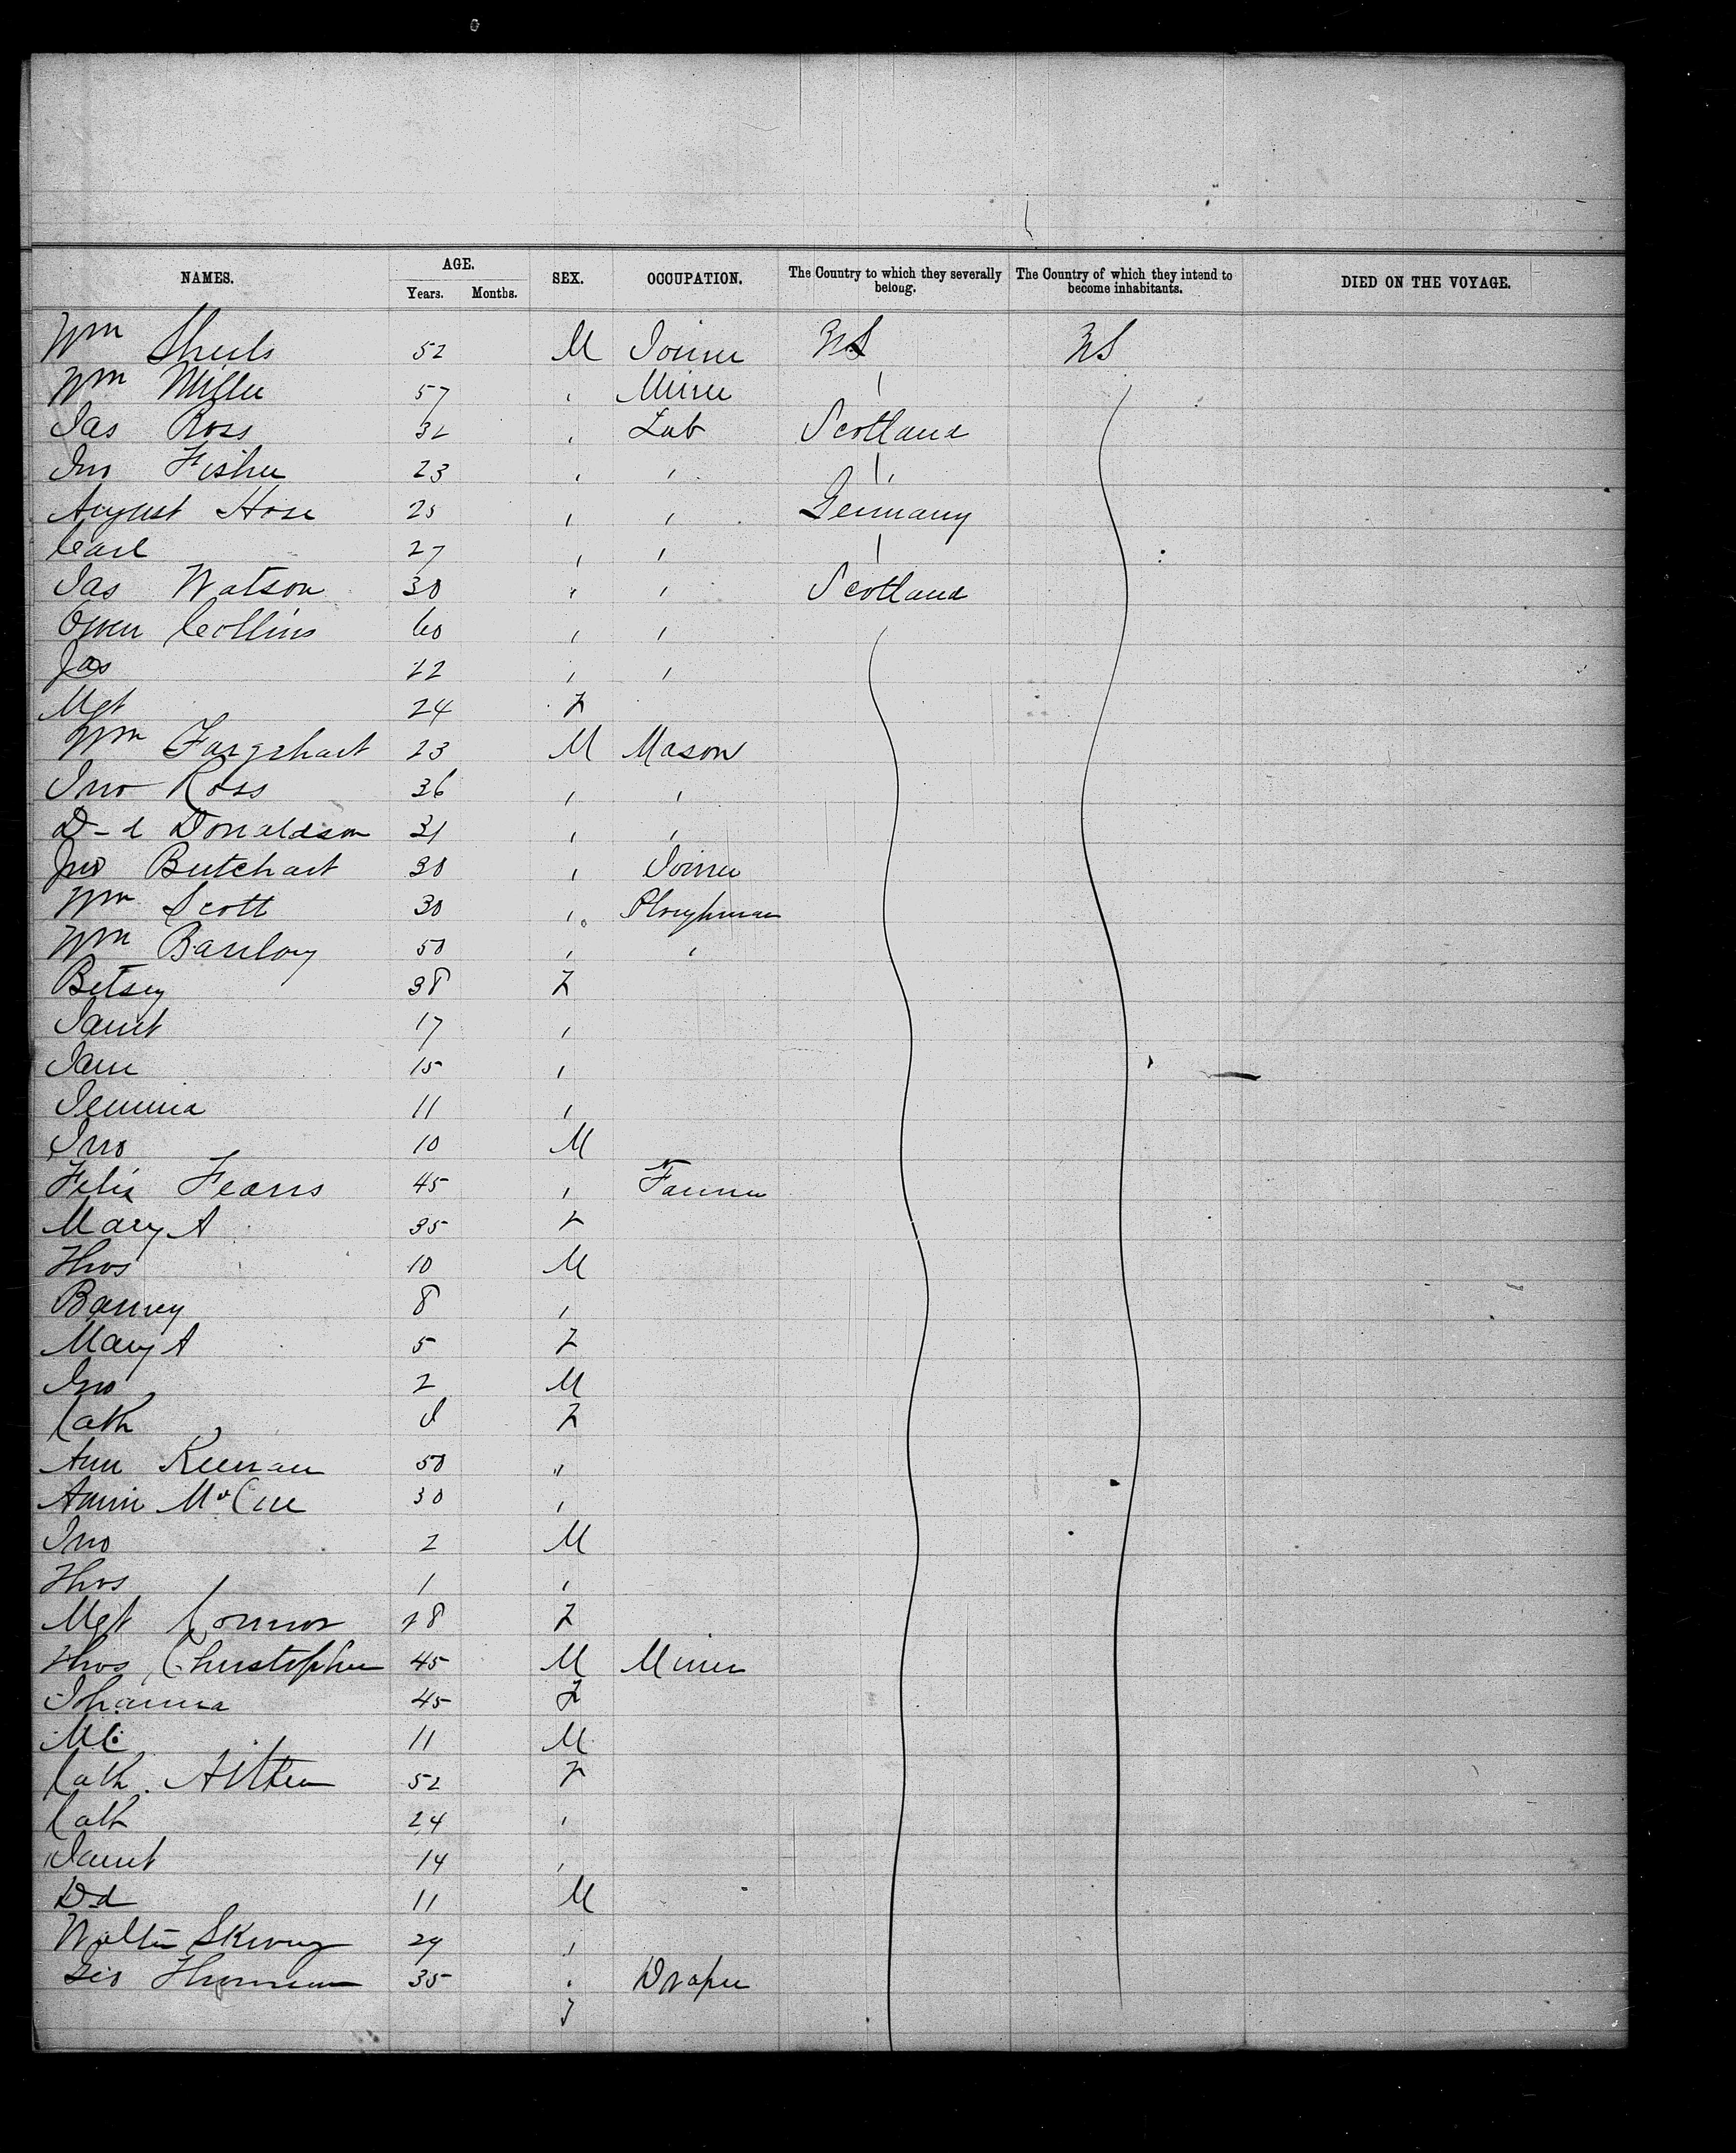 NAMES. AGE. Years. Months. SEX. OCCUPATION. The Country to which they severally belong. The Country of which they intend to become inhabitants. DIED ON THE VOYAGE.
Wm Sheels 52 M Joiner US US
Wm Miller 57 , Miner |
Jas Ross 32 , Lab Scotland
Jno Fisher 23 , , |,
August Hose 25 , , Germany
Carl 27 , , |
Jas Watson 30 " , Scotland
Owen Collins 60 , ,
Jas 22 , ,
Mgt 24 F
Wm 23 M Mason
Jno Ross 36 , ,
D-d Donaldson 31 , ,
Jno Butchart 30 , Joiner
Wm Scott 30 , Ploughman
Wm 50 , ,
Betsey 38 F
Janet 17 ,
Jane 15 ,
Jemima 11 ,
Jno 10 M
Felix Fearns 45 , Farmer
Mary A 35 F
Thos 10 M
Barney 8 ,
Mary A 5 F
Jno 2 M
Cath F
Ann Keenan 50 "
Annie McCue 30 ,
Jno 2 M
Thos 1 ,
Mgt Connor 28 F
Thos Christopher 45 M Miner
Johanna 45 F
Ml 11 M
Cath Aitken 52 F
Cath 24 ,
Janet 14 ,
D-d 11 M
Walter 29 ,
Geo Thomson 35 , Draper